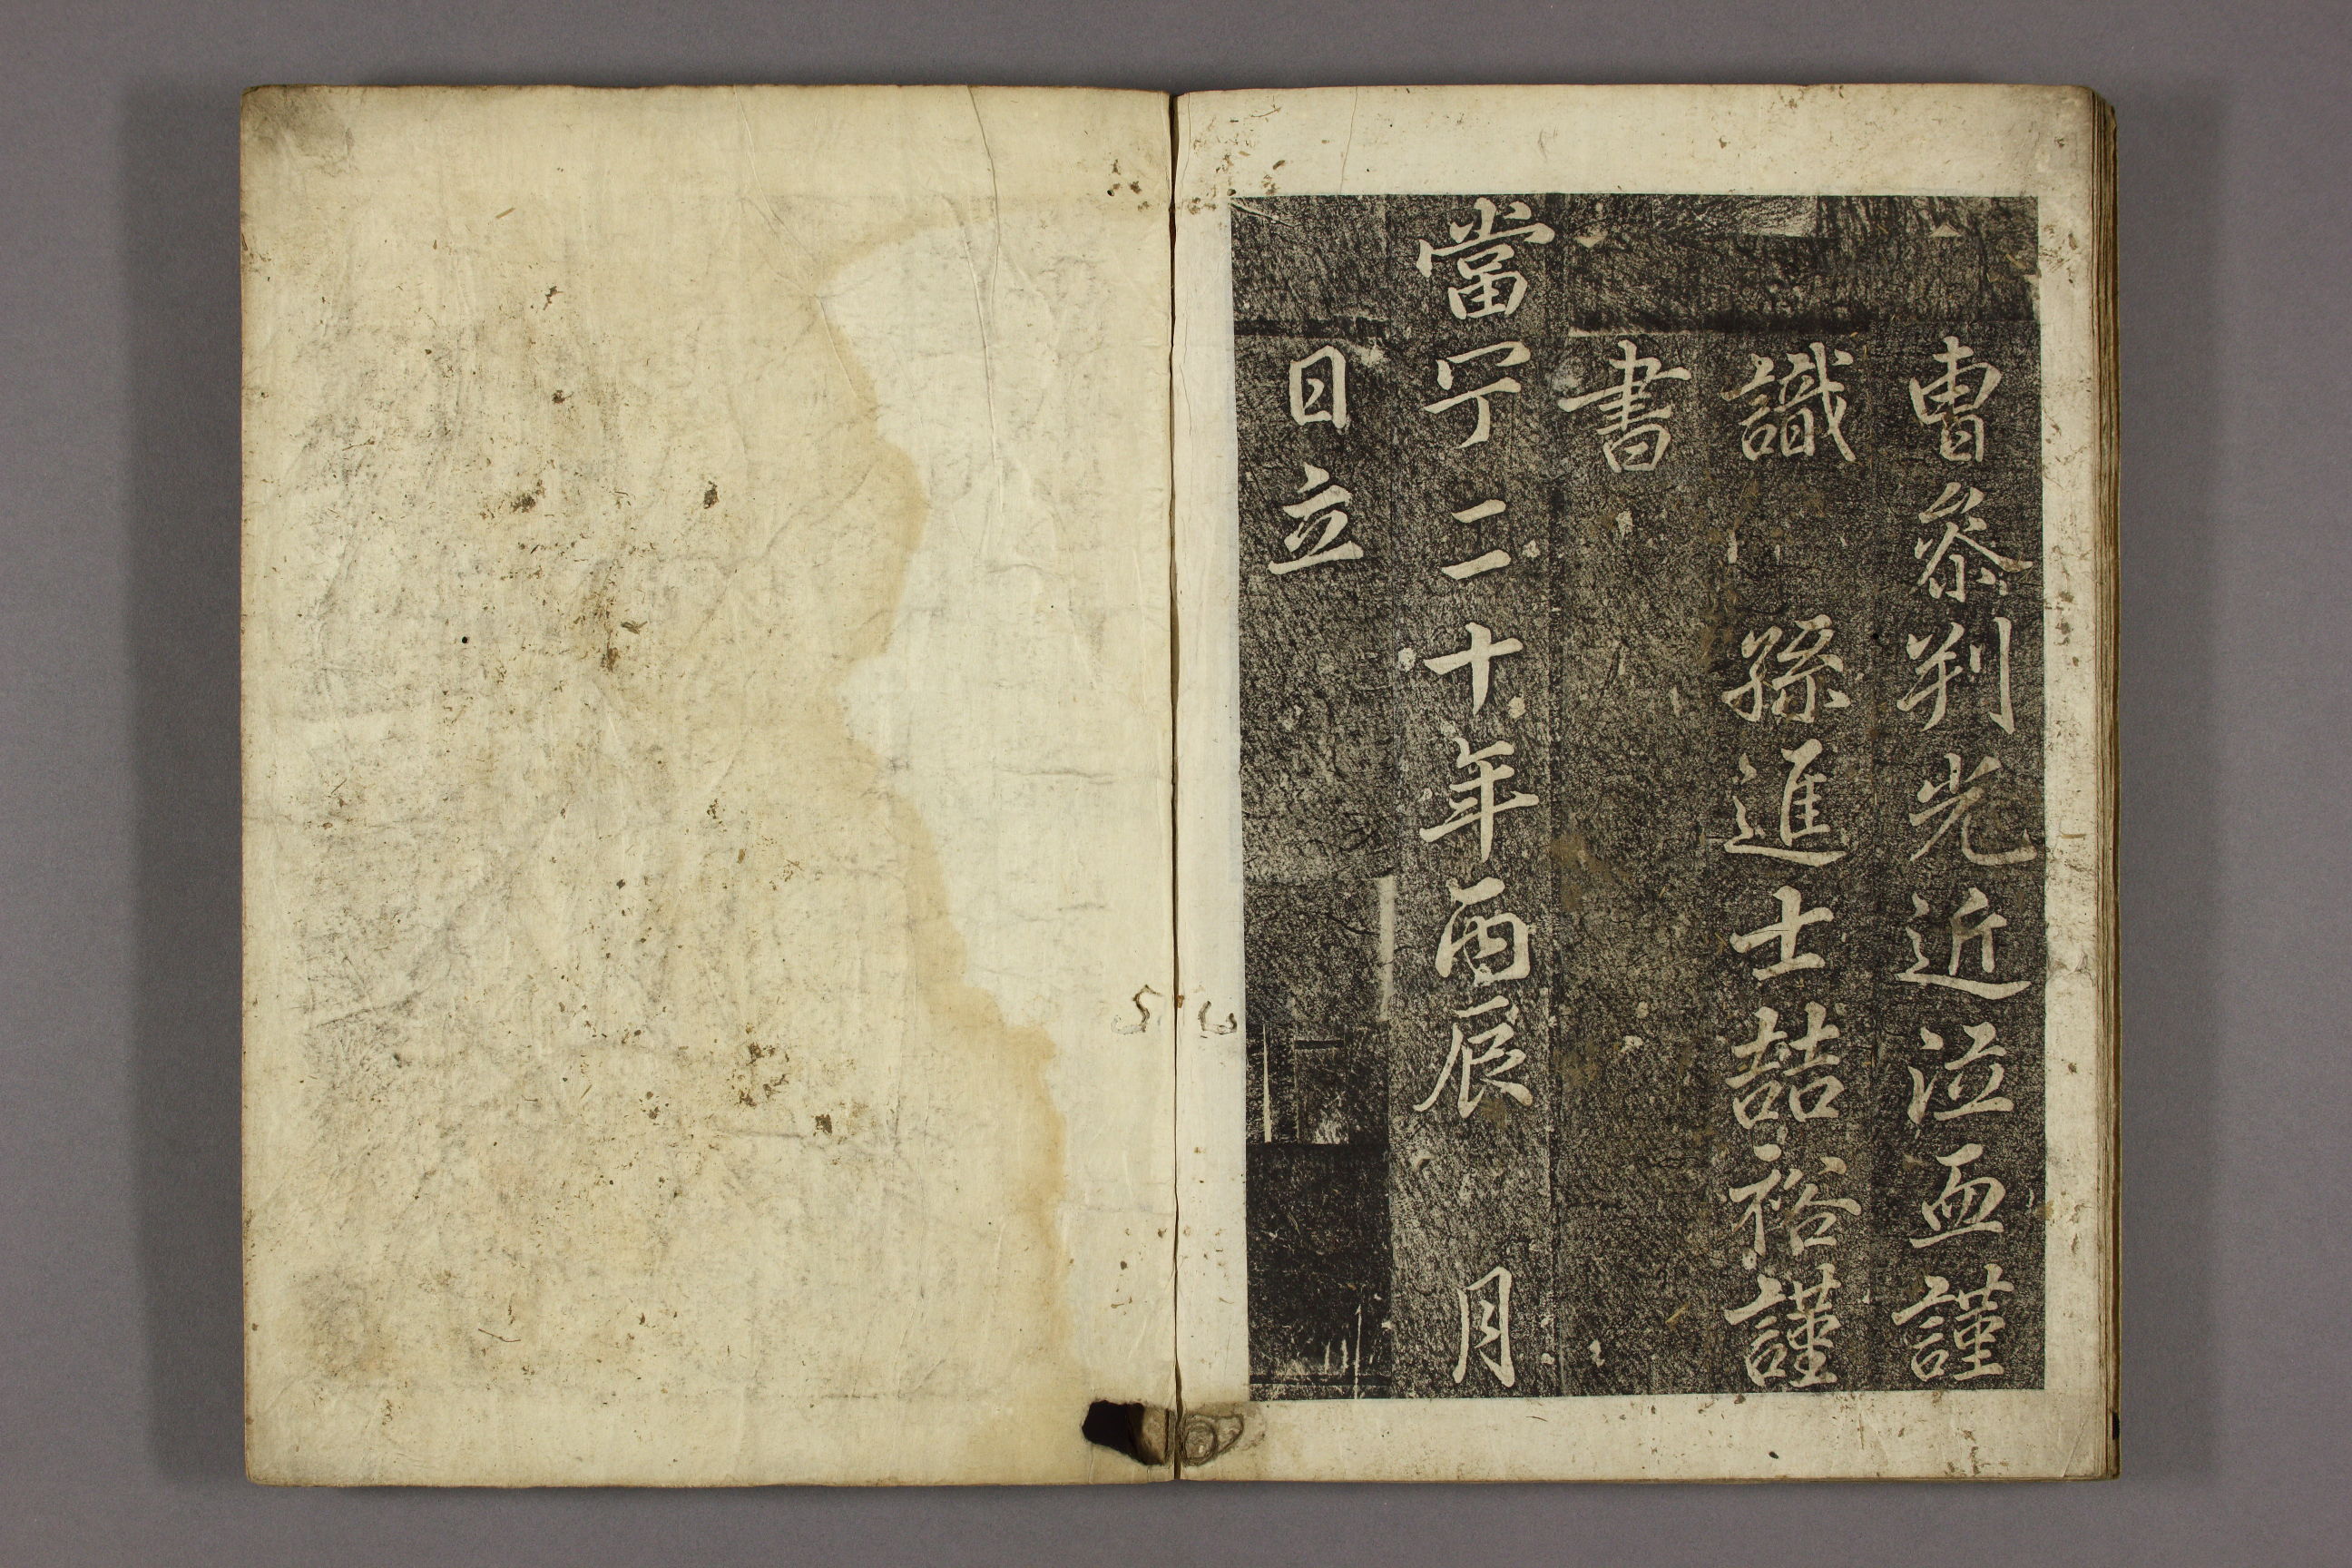 曺叅判光近泣血謹
識　孫進士喆裕謹
書
當宁二十年丙辰　月
日立